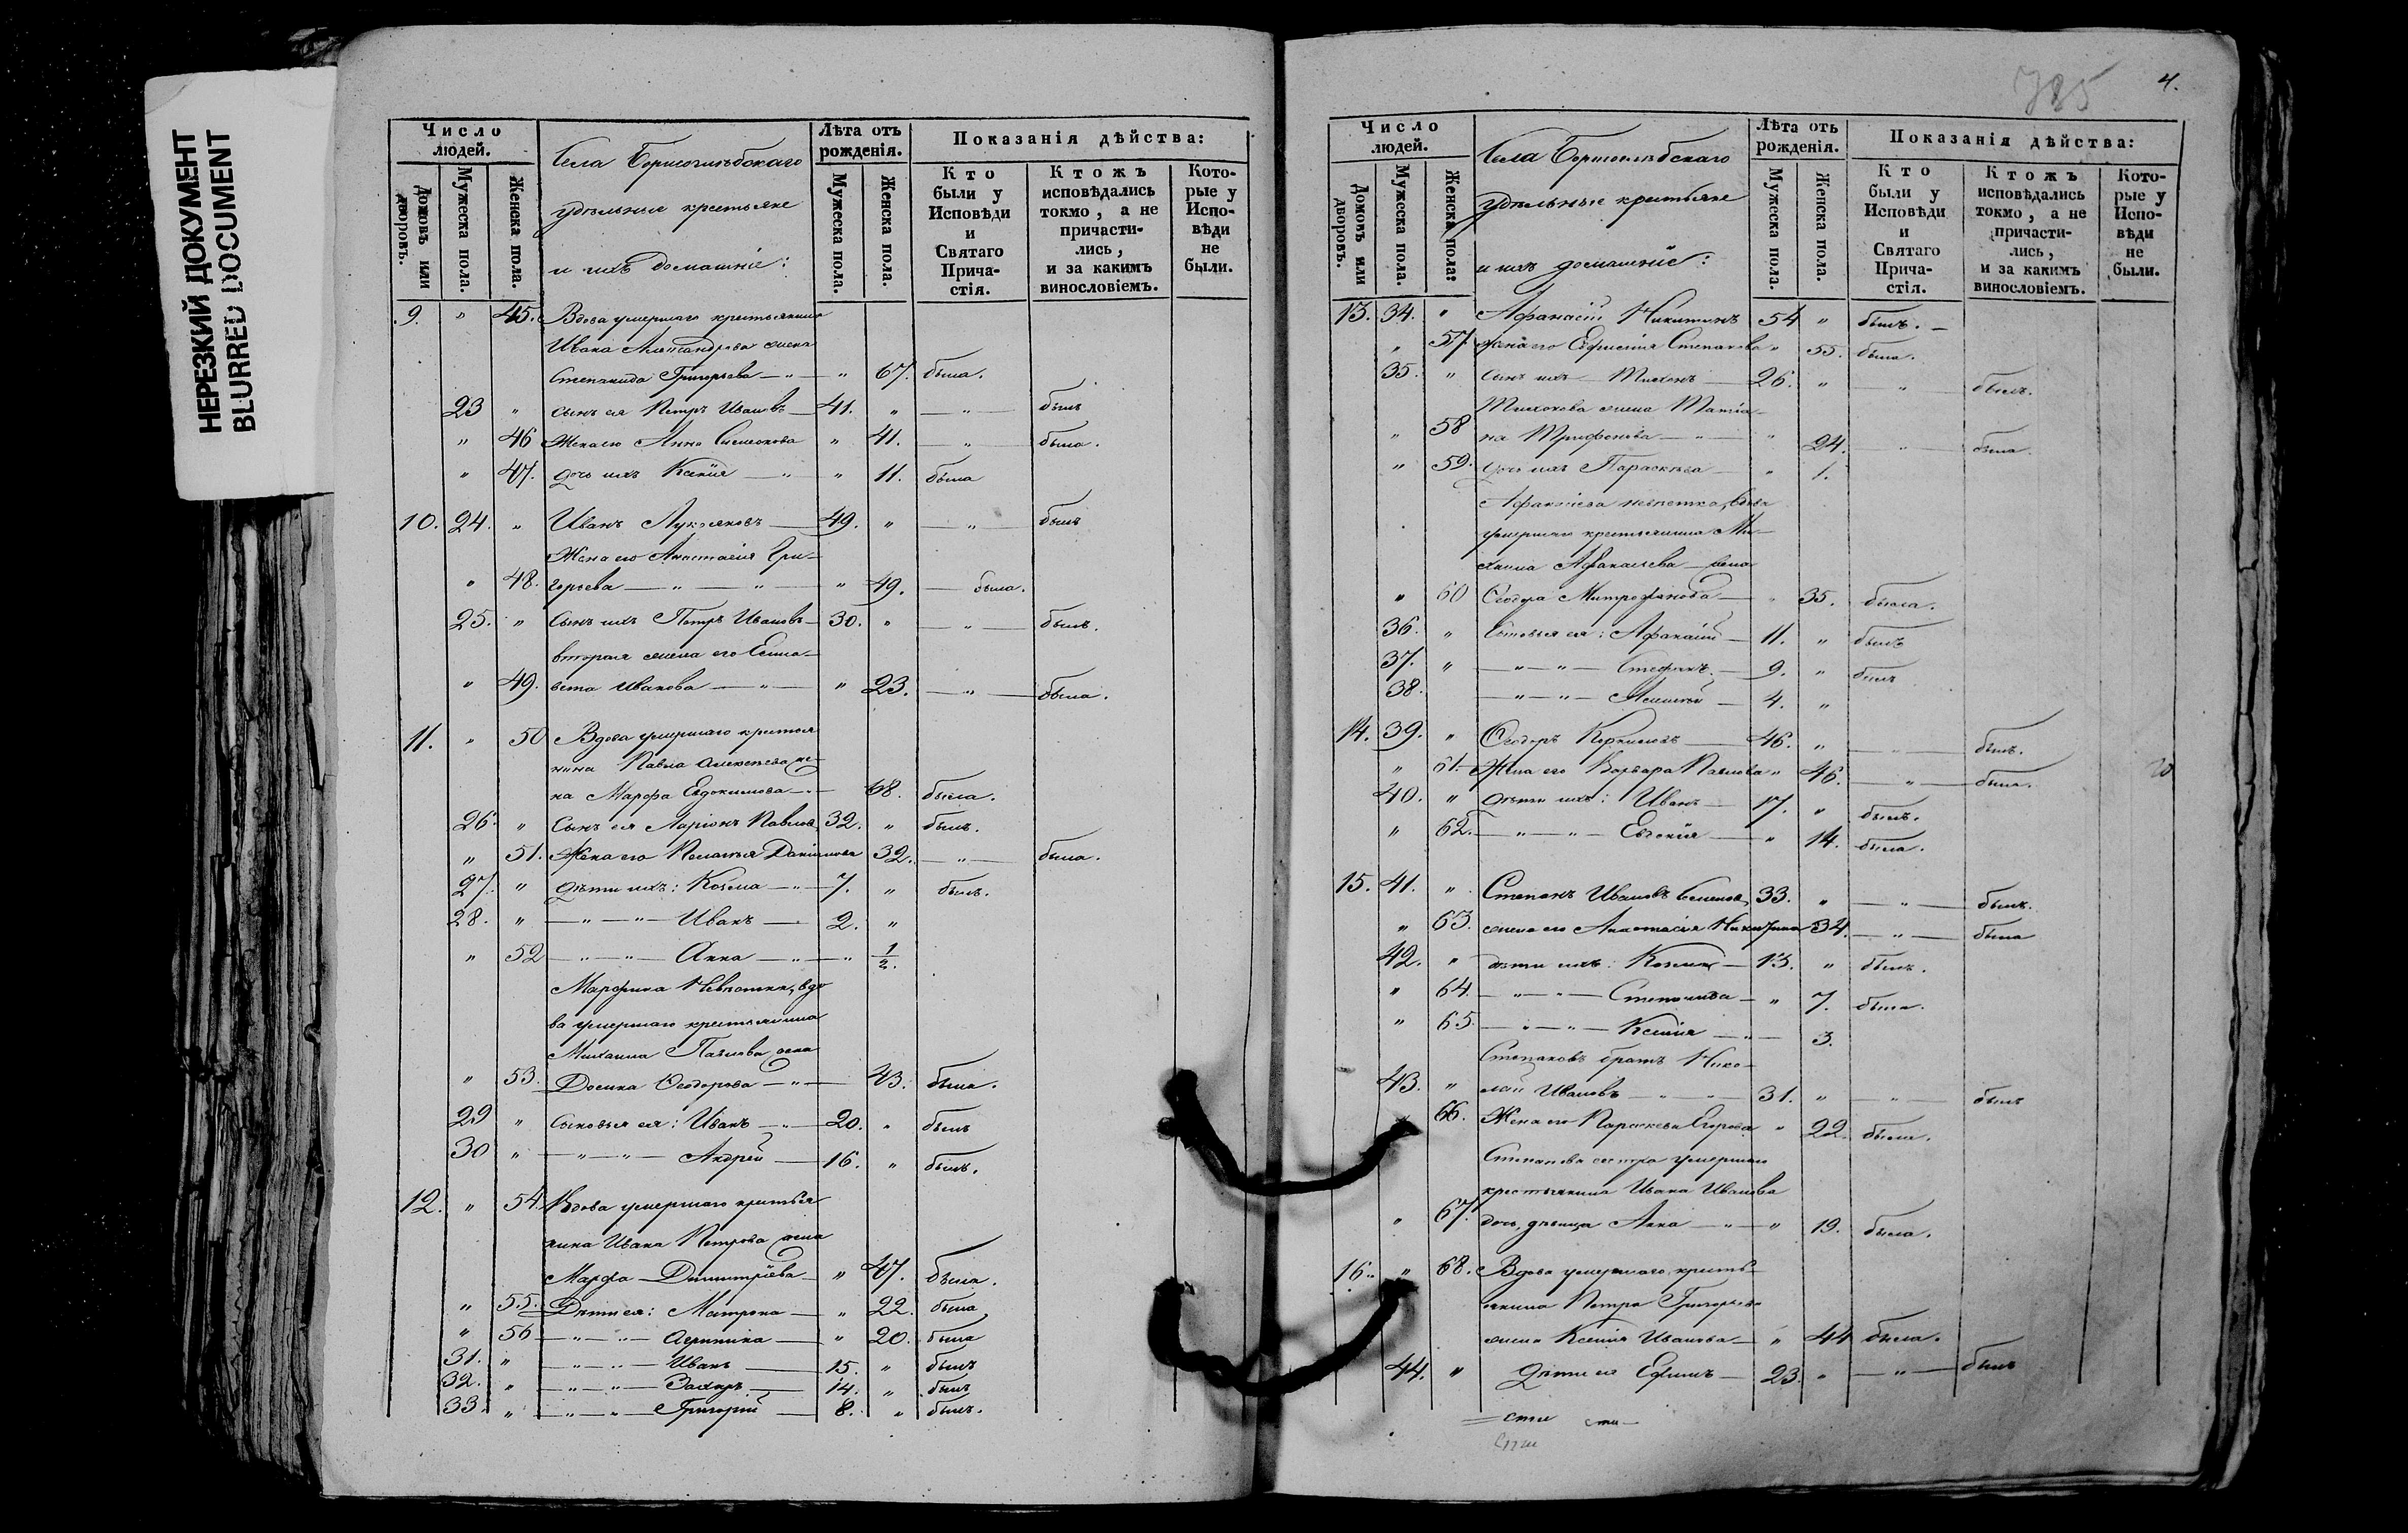 НЕРЕЗКИЙ ДОКУМЕНТ
BLURRED DOCUMENT
Число людей.
Домовъ или дворовъ.
Мужеска пола.
Женска пола.
Села Борисоглѣбскаго
удѣльные крестьяне
и ихъ домашніе:
Лѣта отъ рожденія.
Мужеска пола.
Женска пола.
Показанія дѣйства:
Кто были у Исповѣди и Святаго Прича-стія.
Ктожъ исповѣдались токмо, а не причасти-лись, и за какимъ винословіемъ.
Кото-рые у Испо-вѣди не были.
9. " 45. Вдова умершаго крестьянина
Ивана Александрова жена
Степанида Григорьева — " — " 67. была.
23 " сынъ ея Петръ Ивановъ — 41. " — " — былъ
" 46 Жена его Анна Симеонова " 41. — " — была.
" 47. дочь ихъ Ксенія — " " 11. была
10. 24. " Иванъ Лукьяновъ — 49. " — " — былъ
Жена его Анастасія Гри-
" 48. горьева — " — " — " 49. — была.
25. " Сынъ ихъ Петръ Ивановъ — 30. " — " — былъ.
вторая жена его Елиса-
" 49. вета Иванова — " — " 23. — " — была.
11. " 50 Вдова умершаго крестья
нина Павла Алексѣева же-
на Марѳа Евдокимова — " — 68. была.
26. " Сынъ ея Ларіонъ Павловъ 32. " былъ.
" 51. Жена его Пелагья Даніилова 32. — " — была.
27. " дѣти ихъ: Козьма — " — 7. " былъ.
28. " — " — " — Иванъ — 2. "
" 52 — " — " — Анна — " — " 1/2.
Марфина невѣстка, вдо
ва умершаго крестьянина
Михаила Павлова жена
" 53. Домна Ѳеодорова — " — 43. была.
29 " Сыновья ея: Иванъ — " — 20. " былъ
30 " — " — " — Андрей — 16. " былъ.
12. " 54. Вдова умершаго крестья
нина Ивана Петрова жена
Марфа Димитріева — " 47. была.
" 55. Дѣти ея: Матрона — " 22. была
" 56 — " — " — Агрипина — " 20. была
31. " — " — " — Иванъ — 15. " былъ
32. " — " — " — Захаръ — 14. " былъ
33. " — " — " — Григорій — 8. " былъ.
785
4.
Число людей.
Домовъ или дворовъ.
Мужеска пола.
Женска пола:
Села Борисоглѣбскаго
удѣльные крестьяне
и ихъ домашніе:
Лѣта отъ рожденія.
Мужеска пола.
Женска пола.
Показанія дѣйства:
Кто были у Исповѣди и Святаго Прича-стія.
Ктожъ исповѣдались токмо, а не причасти-лись, и за какимъ винословіемъ.
Кото-рые у Испо-вѣди не были.
13. 34. " Афанасій Никитинъ 54 " былъ. —
" 57. жена его Евфимія Степанова " 55. была.
35. " сынъ ихъ — Тихонъ — 26. " — " — былъ.
Тихонова жена Татіа-
" 58 на Трифонова — " — " 24. — " — была.
" 59. дочь ихъ Параскева — " 1.
Афанасіева невѣстка, вдова
умершаго крестьянина Ми-
хаила Афанасьева жена
" 60 Ѳеодора Митрофанова — " 35. была.
36. " Сыновья ея: Афанасій — 11. " былъ
37. " — " — " — Стефанъ. — 9. " былъ
38. " — " — Алексѣй — 4. "
14. 39. " Ѳеодоръ Корниловъ — 46. " — " — былъ.
" 61. Жена его Варвара Павлова " 46. — " — была.
40. " дѣти ихъ: Иванъ — 17. " былъ.
" 62. — " — " — Евгенія — " 14. была.
15. 41. " Степанъ Ивановъ 33. " — " — былъ.
" 63. жена его Анастасія Никитина 34. — " — была
42. " дѣти ихъ: Козьма — 13. " былъ.
" 64. — " — " — Степанида — " 7. была.
" 65. — " — " — Ксенія — " — 3.
Степановъ братъ Нико-
43. " лай Ивановъ — " — " 31. " — " — былъ
66. Жена его Параскева Егорова " 22. была.
Степанова сестра умершаго
крестьянина Ивана Иванова
" 67. дочь, дѣвица Анна — " — " 19. была.
16. " 68. Вдова умершаго кресть-
янина Петра Григорьева
жена Ксенія Иванова — " 44 была.
44. " Дѣти ея Ефимъ — 23. " — " — былъ